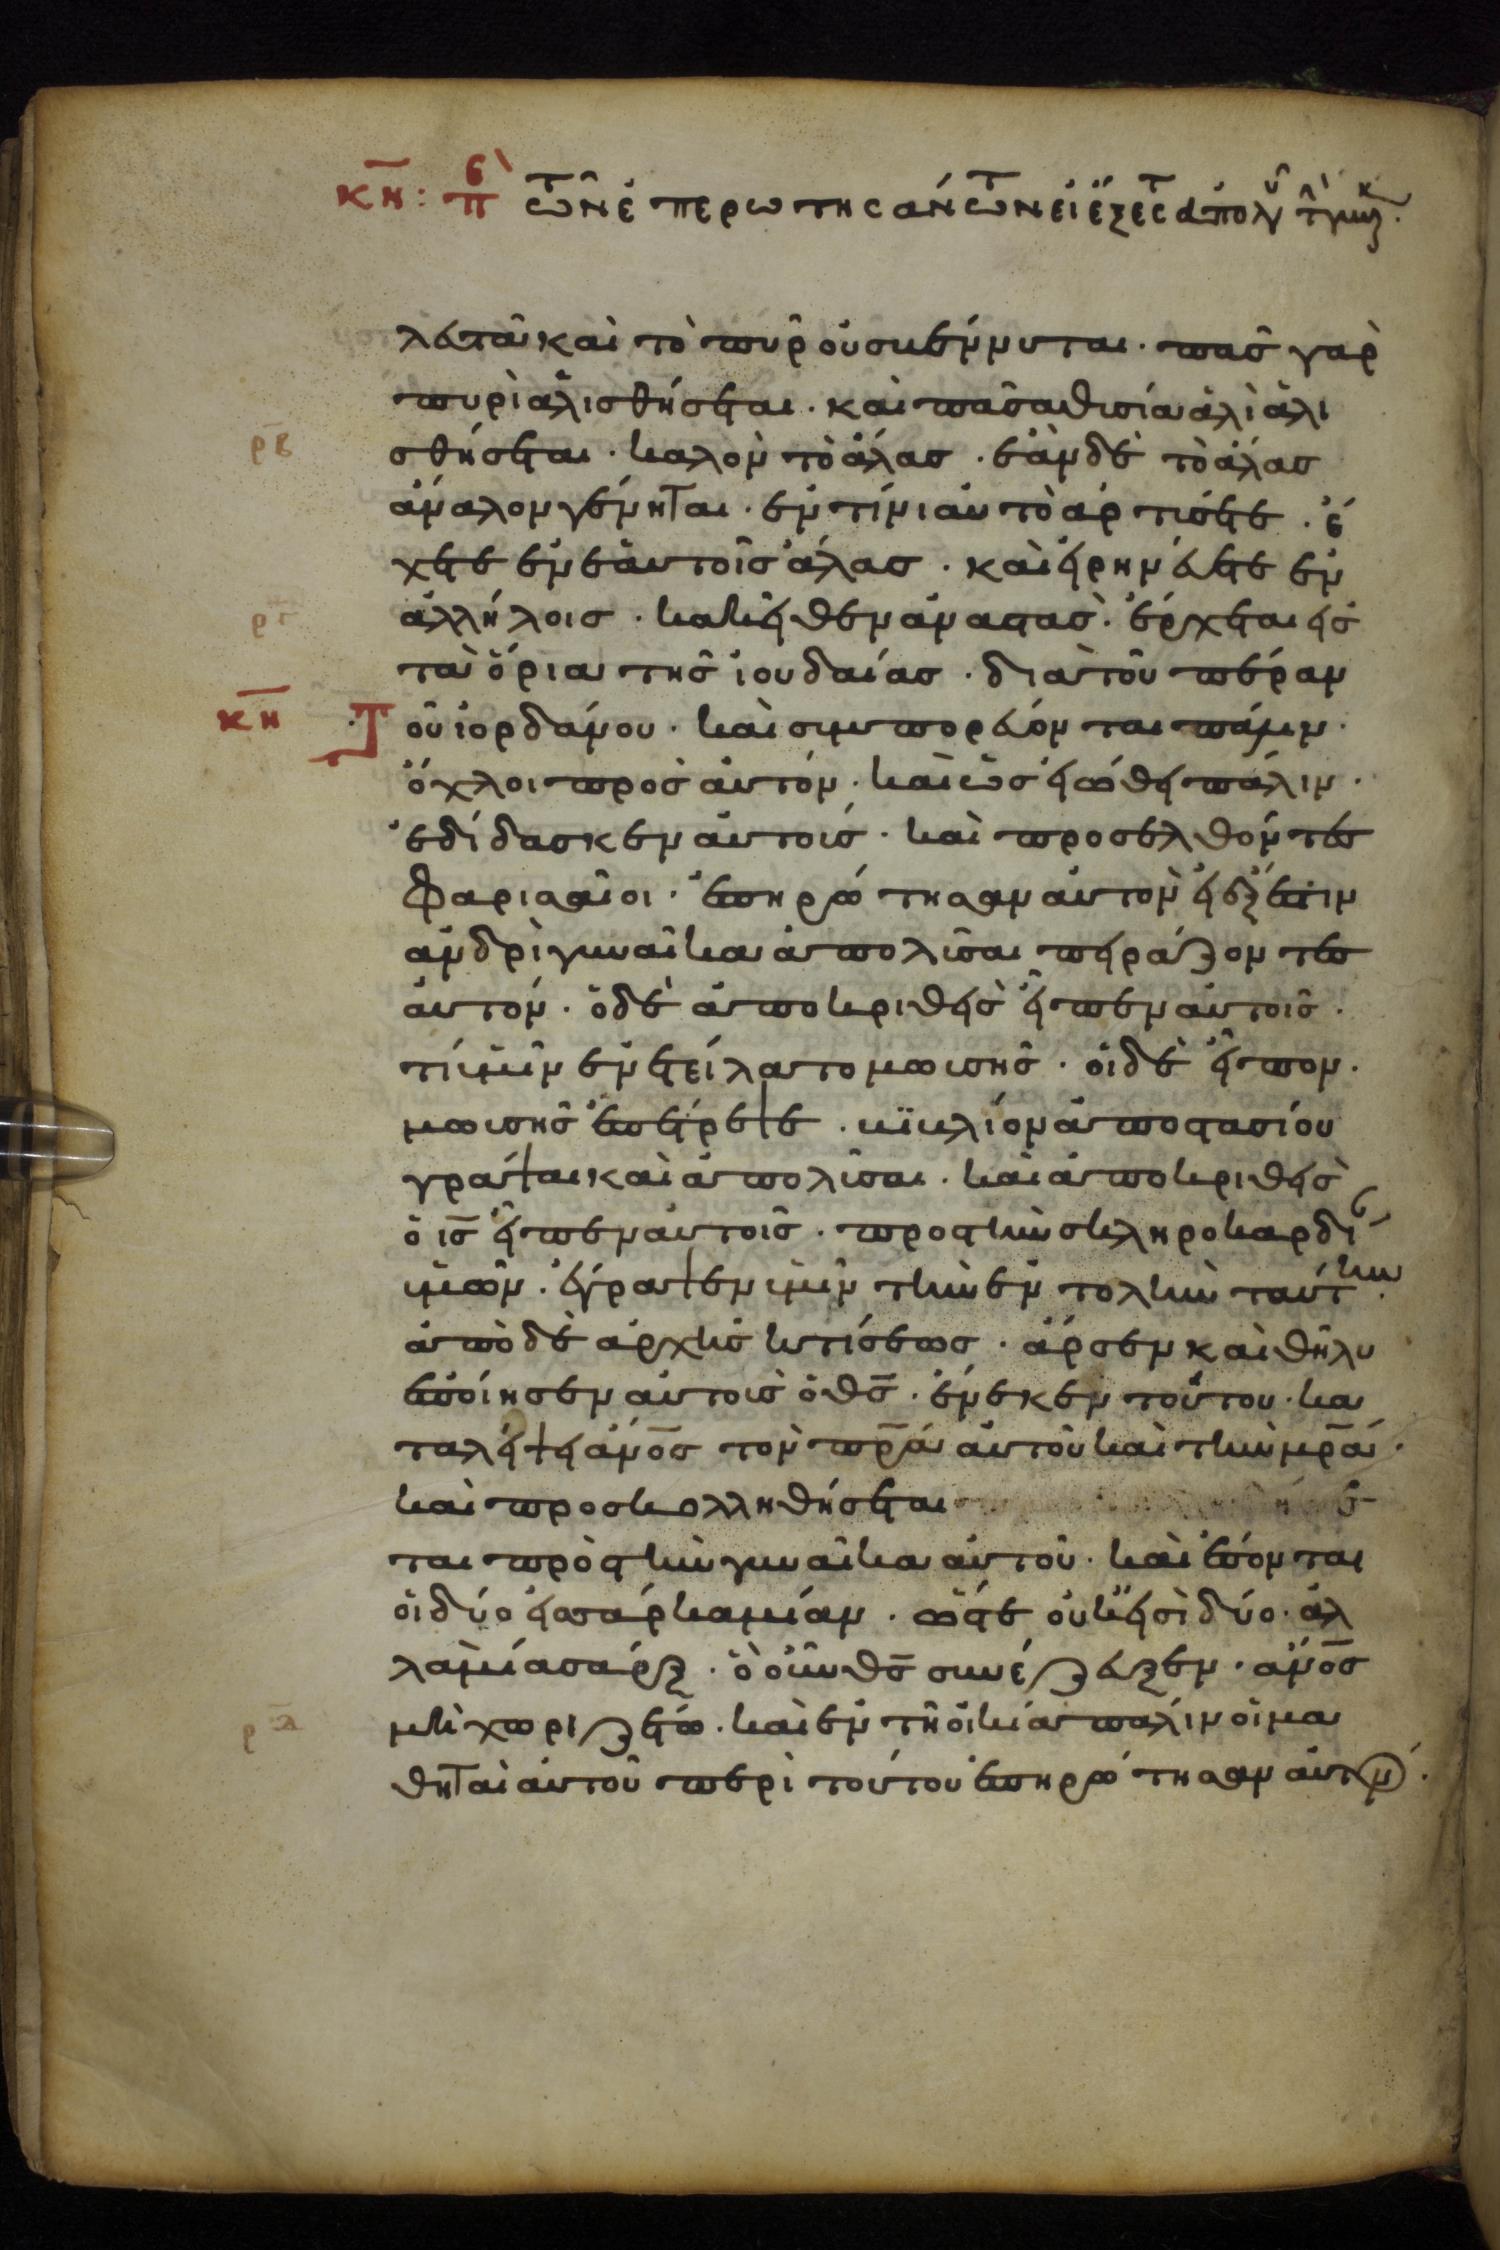 κη: πε τῶν ἐπερωτησάντων εἰ ἔξεστ ἀπολῦ τ γυναικ.
λευτᾶ καὶ τὸ πυρ οὐ σβέννυται. πᾶς γὰρ
πυρὶ ἁλισθήσεται. καὶ πᾶσα θυσία ἁλὶ ἁλι
ρβ σθήσεται. καλὸν τὸ ἅλας. ἐὰν δὲ τὸ ἅλας
ἄναλον γένηται. ἐν τίνι αὐτὸ ἀρτύσετε. ἔ
χετε ἐν ἑαυτοῖς ἅλας. καὶ εἰρηνεύετε ἐν
ργ ἀλλήλοις. κακεῖθεν ἀναστὰς. ἔρχεται εἰς
τὰ ὅρια τῆς ἰουδαίας. διὰ τοῦ πέραν
κη Τοῦ ἰορδάνου. καὶ συμπορεύονται πάλιν.
ὄχλοι πρὸς αὐτόν. καὶ ὡς εἰώθει πάλιν.
ἐδίδασκεν αὐτούς. καὶ προσελθόντες
φαρισαῖοι. ἐπηρώτησαν αὐτὸν εἰ ἔξεστιν
ἀνδρὶ γυναῖκα ἀπολῦσαι πειράζοντες
αὐτόν. ὁ δὲ ἀποκριθεὶς εἶπεν αὐτοῖς.
τί ὑμῖν ἐνετείλατο μωυσῆς. οἱ δὲ εἶπον.
μωυσῆς ἐπέτρεψε. βιβλίον ἀποστασίου
γράψαι καὶ ἀπολῦσαι. καὶ ἀποκριθεὶς
ὁ ις εἶπεν αὐτοῖς. πρὸς τὴν σκληροκαρδί
ὑμῶν. ἔγραψεν ὑμῖν τὴν ἐντολὴν ταύτην.
ἀπὸ δὲ ἀρχῆς κτίσεως. ἄρσεν καὶ θῆλυ
ἐποίησεν αὐτοὺς ὁ θς. ἕνεκεν τούτου. κα
ταλείψει ἄνος τὸν πρα αὐτοῦ καὶ τὴν μρα.
καὶ προσκολληθήσεται
ται πρὸς τὴν γυναῖκα αὐτοῦ. καὶ ἔσονται
οἱ δύο εἰς σάρκα μίαν. ὥστε οὐκ εἰσὶ δύο. ἀλ
λὰ μία σάρξ. ὃ οὖν θς συνέζευξεν. ἄνος
ρδ μὴ χωριζέτω. καὶ ἐν τῇ οἰκίᾳ πάλιν οἱ μα
θηταὶ αὐτοῦ περὶ τούτου ἐπηρώτησαν αὐτόν.